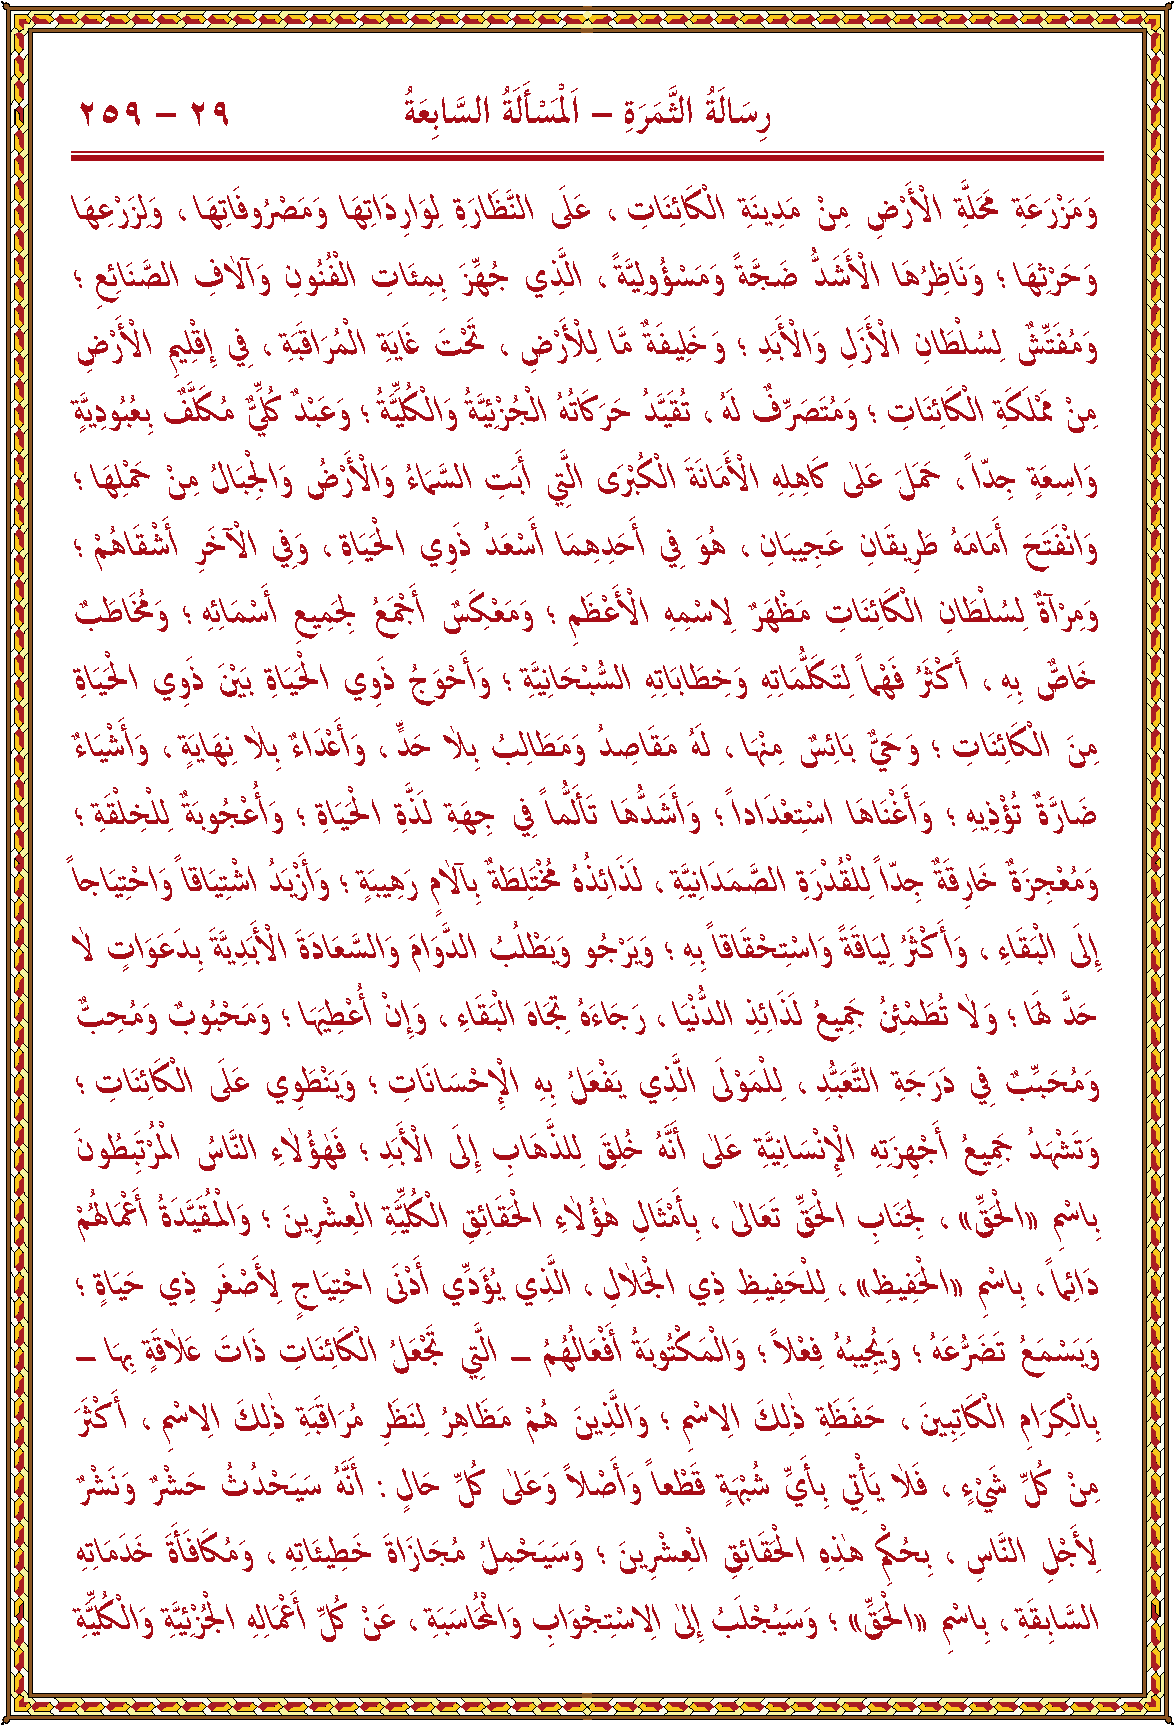 رِسَالَةُ الثَّمَرَةِ – اَلْمَسْأَلَةُ السَّابِعَةُ ٢٩ – ٢٥٩
وَمَزْرَعَةِ مَحَلَّةِ الْأَرْضِ مِنْ مَدِينَةِ الْكَائِنَاتِ ، عَلَى النَّظَارَةِ لِوَارِدَاتِهَا وَمَصْرُوفَاتِهَا ، وَلِزَرْعِهَا
وَحَرْثِهَا ؛ وَنَاظِرُهَا الْأَشَدُّ ضَجَّةً وَمَسْؤُولِيَّةً ، الَّذِي جُهِّزَ بِمِئَاتِ الْفُنُونِ وَآلَافِ الصَّنَائِعِ ؛
وَمُفَتِّشٌ لِسُلْطَانِ الْأَزَلِ وَالْأَبَدِ ؛ وَخَلِيفَةٌ مَّا لِلْأَرْضِ ، تَحْتَ غَايَةِ الْمُرَاقَبَةِ ، فِي إِقْلِيمِ الْأَرْضِ
مِنْ مَمْلَكَةِ الْكَائِنَاتِ ؛ وَمُتَصَرِّفٌ لَهُ ، تُقَيَّدُ حَرَكَاتُهُ الْجُزْئِيَّةُ وَالْكُلِّيَّةُ ؛ وَعَبْدٌ كُلِّيٌّ مُكَلَّفٌ بِعُبُودِيَّةٍ
وَاسِعَةٍ جِدّاً ، حَمَلَ عَلٰى كَاهِلِهِ الْأَمَانَةَ الْكُبْرَى الَّتِي أَبَتِ السَّمَاءُ وَالْأَرْضُ وَالْجِبَالُ مِنْ حَمْلِهَا ؛
وَانْفَتَحَ أَمَامَهُ طَرِيقَانِ عَجِيبَانِ ، هُوَ فِي أَحَدِهِمَا أَسْعَدُ ذَوِي الْحَيَاةِ ، وَفِي الْآخَرِ أَشْقَاهُمْ ؛
وَمِرْآةٌ لِسُلْطَانِ الْكَائِنَاتِ مَظْهَرٌ لِاسْمِهِ الْأَعْظَمِ ؛ وَمَعْكَسٌ أَجْمَعُ لِجَمِيعِ أَسْمَائِهِ ؛ وَمُخَاطَبٌ
خَاصٌّ بِهِ ، أَكْثَرُ فَهْماً لِتَكَلُّمَاتِهِ وَخِطَابَاتِهِ السُّبْحَانِيَّةِ ؛ وَأَحْوَجُ ذَوِي الْحَيَاةِ بَيْنَ ذَوِي الْحَيَاةِ
مِنَ الْكَائِنَاتِ ؛ وَحَيٌّ بَائِسٌ مِنْهَا ، لَهُ مَقَاصِدُ وَمَطَالِبُ بِلَا حَدٍّ ، وَأَعْدَاءٌ بِلَا نِهَايَةٍ ، وَأَشْيَاءٌ
ضَارَّةٌ تُؤْذِيهِ ؛ وَأَغْنَاهَا اسْتِعْدَاداً ؛ وَأَشَدُّهَا تَأَلُّماً فِي جِهَةِ لَذَّةِ الْحَيَاةِ ؛ وَأُعْجُوبَةٌ لِلْخِلْقَةِ ؛
وَمُعْجِزَةٌ خَارِقَةٌ جِدّاً لِلْقُدْرَةِ الصَّمَدَانِيَّةِ ، لَذَائِذُهُ مُخْتَلِطَةٌ بِآلَامٍ رَهِيبَةٍ ؛ وَأَزْيَدُ اشْتِيَاقاً وَاحْتِيَاجاً
إِلَى الْبَقَاءِ ، وَأَكْثَرُ لِيَاقَةً وَاسْتِحْقَاقاً بِهِ ؛ وَيَرْجُو وَيَطْلُبُ الدَّوَامَ وَالسَّعَادَةَ الْأَبَدِيَّةَ بِدَعَوَاتٍ لَا
حَدَّ لَهَا ؛ وَلَا تُطَمْئِنُ جَمِيعُ لَذَائِذِ الدُّنْيَا ، رَجَاءَهُ تِجَاهَ الْبَقَاءِ ، وَإِنْ أُعْطِيَهَا ؛ وَمَحْبُوبٌ وَمُحِبٌّ
وَمُحَبِّبٌ فِي دَرَجَةِ التَّعَبُّدِ ، لِلْمَوْلَى الَّذِي يَفْعَلُ بِهِ الْإِحْسَانَاتِ ؛ وَيَنْطَوِي عَلَى الْكَائِنَاتِ ؛
وَتَشْهَدُ جَمِيعُ أَجْهِزَتِهِ الْإِنْسَانِيَّةِ عَلٰى أَنَّهُ خُلِقَ لِلذَّهَابِ إِلَى الْأَبَدِ ؛ فَهٰؤُلَاءِ النَّاسُ الْمُرْتَبِطُونَ
بِاسْمِ «الْحَقِّ» ، لِجَنَابِ الْحَقِّ تَعَالٰى ، بِأَمْثَالِ هٰؤُلَاءِ الْحَقَائِقِ الْكُلِّيَّةِ الْعِشْرِينَ ؛ وَالْمُقَيَّدَةُ أَعْمَالُهُمْ
دَائِماً ، بِاسْمِ «الْحَفِيظِ» ، لِلْحَفِيظِ ذِي الْجَلَالِ ، الَّذِي يُؤَدِّي أَدْنَى احْتِيَاجٍ لِأَصْغَرِ ذِي حَيَاةٍ ؛
وَيَسْمَعُ تَضَرُّعَهُ ؛ وَيُجِيبُهُ فِعْلاً ؛ وَالْمَكْتُوبَةُ أَفْعَالُهُمْ – الَّتِي تَجْعَلُ الْكَائِنَاتِ ذَاتَ عَلَاقَةٍ بِهَا –
بِالْكِرَامِ الْكَاتِبِينَ ، حَفَظَةِ ذٰلِكَ الِاسْمِ ؛ وَالَّذِينَ هُمْ مَظَاهِرُ لِنَظَرِ مُرَاقَبَةِ ذٰلِكَ الِاسْمِ ، أَكْثَرَ
مِنْ كُلِّ شَيْءٍ ، فَلَا يَأْتِي بِأَيِّ شُبْهَةٍ قَطْعاً وَأَصْلاً وَعَلٰى كُلِّ حَالٍ : أَنَّهُ سَيَحْدُثُ حَشْرٌ وَنَشْرٌ
لِأَجْلِ النَّاسِ ، بِحُكْمِ هٰذِهِ الْحَقَائِقِ الْعِشْرِينَ ؛ وَسَيَحْمِلُ مُجَازَاةَ خَطِيئَاتِهِ ، وَمُكَافَأَةَ خَدَمَاتِهِ
السَّابِقَةِ ، بِاسْمِ «الْحَقِّ» ؛ وَسَيُجْلَبُ إِلٰى الِاسْتِجْوَابِ وَالْمُحَاسَبَةِ ، عَنْ كُلِّ أَعْمَالِهِ الْجُزْئِيَّةِ وَالْكُلِّيَّةِ